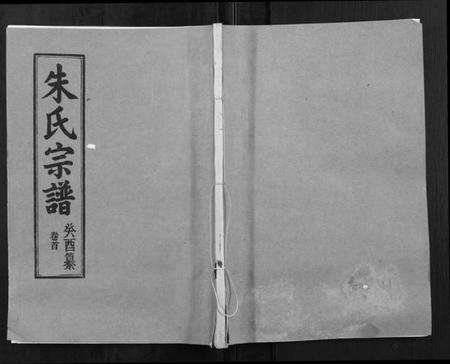 朱氏宗譜
癸酉篡
卷首